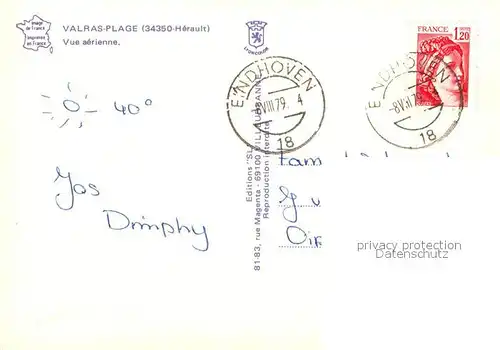 Image
de France
Imprimée
en France
VALRAS-PLAGE (34350-Hérault)
Vue aérienne.
LYONCOLOR
FRANCE
1,20
EINDHOVEN
-8 VIII 79. 4
18
EINDHOVEN
-8 VIII 79
18
40°
Jos
Dimphy
Editions "SL"
81-83, rue Magenta - 69100 VILLEURBANNE
Reproduction interdite
Fam
Oir
privacy protection
Datenschutz